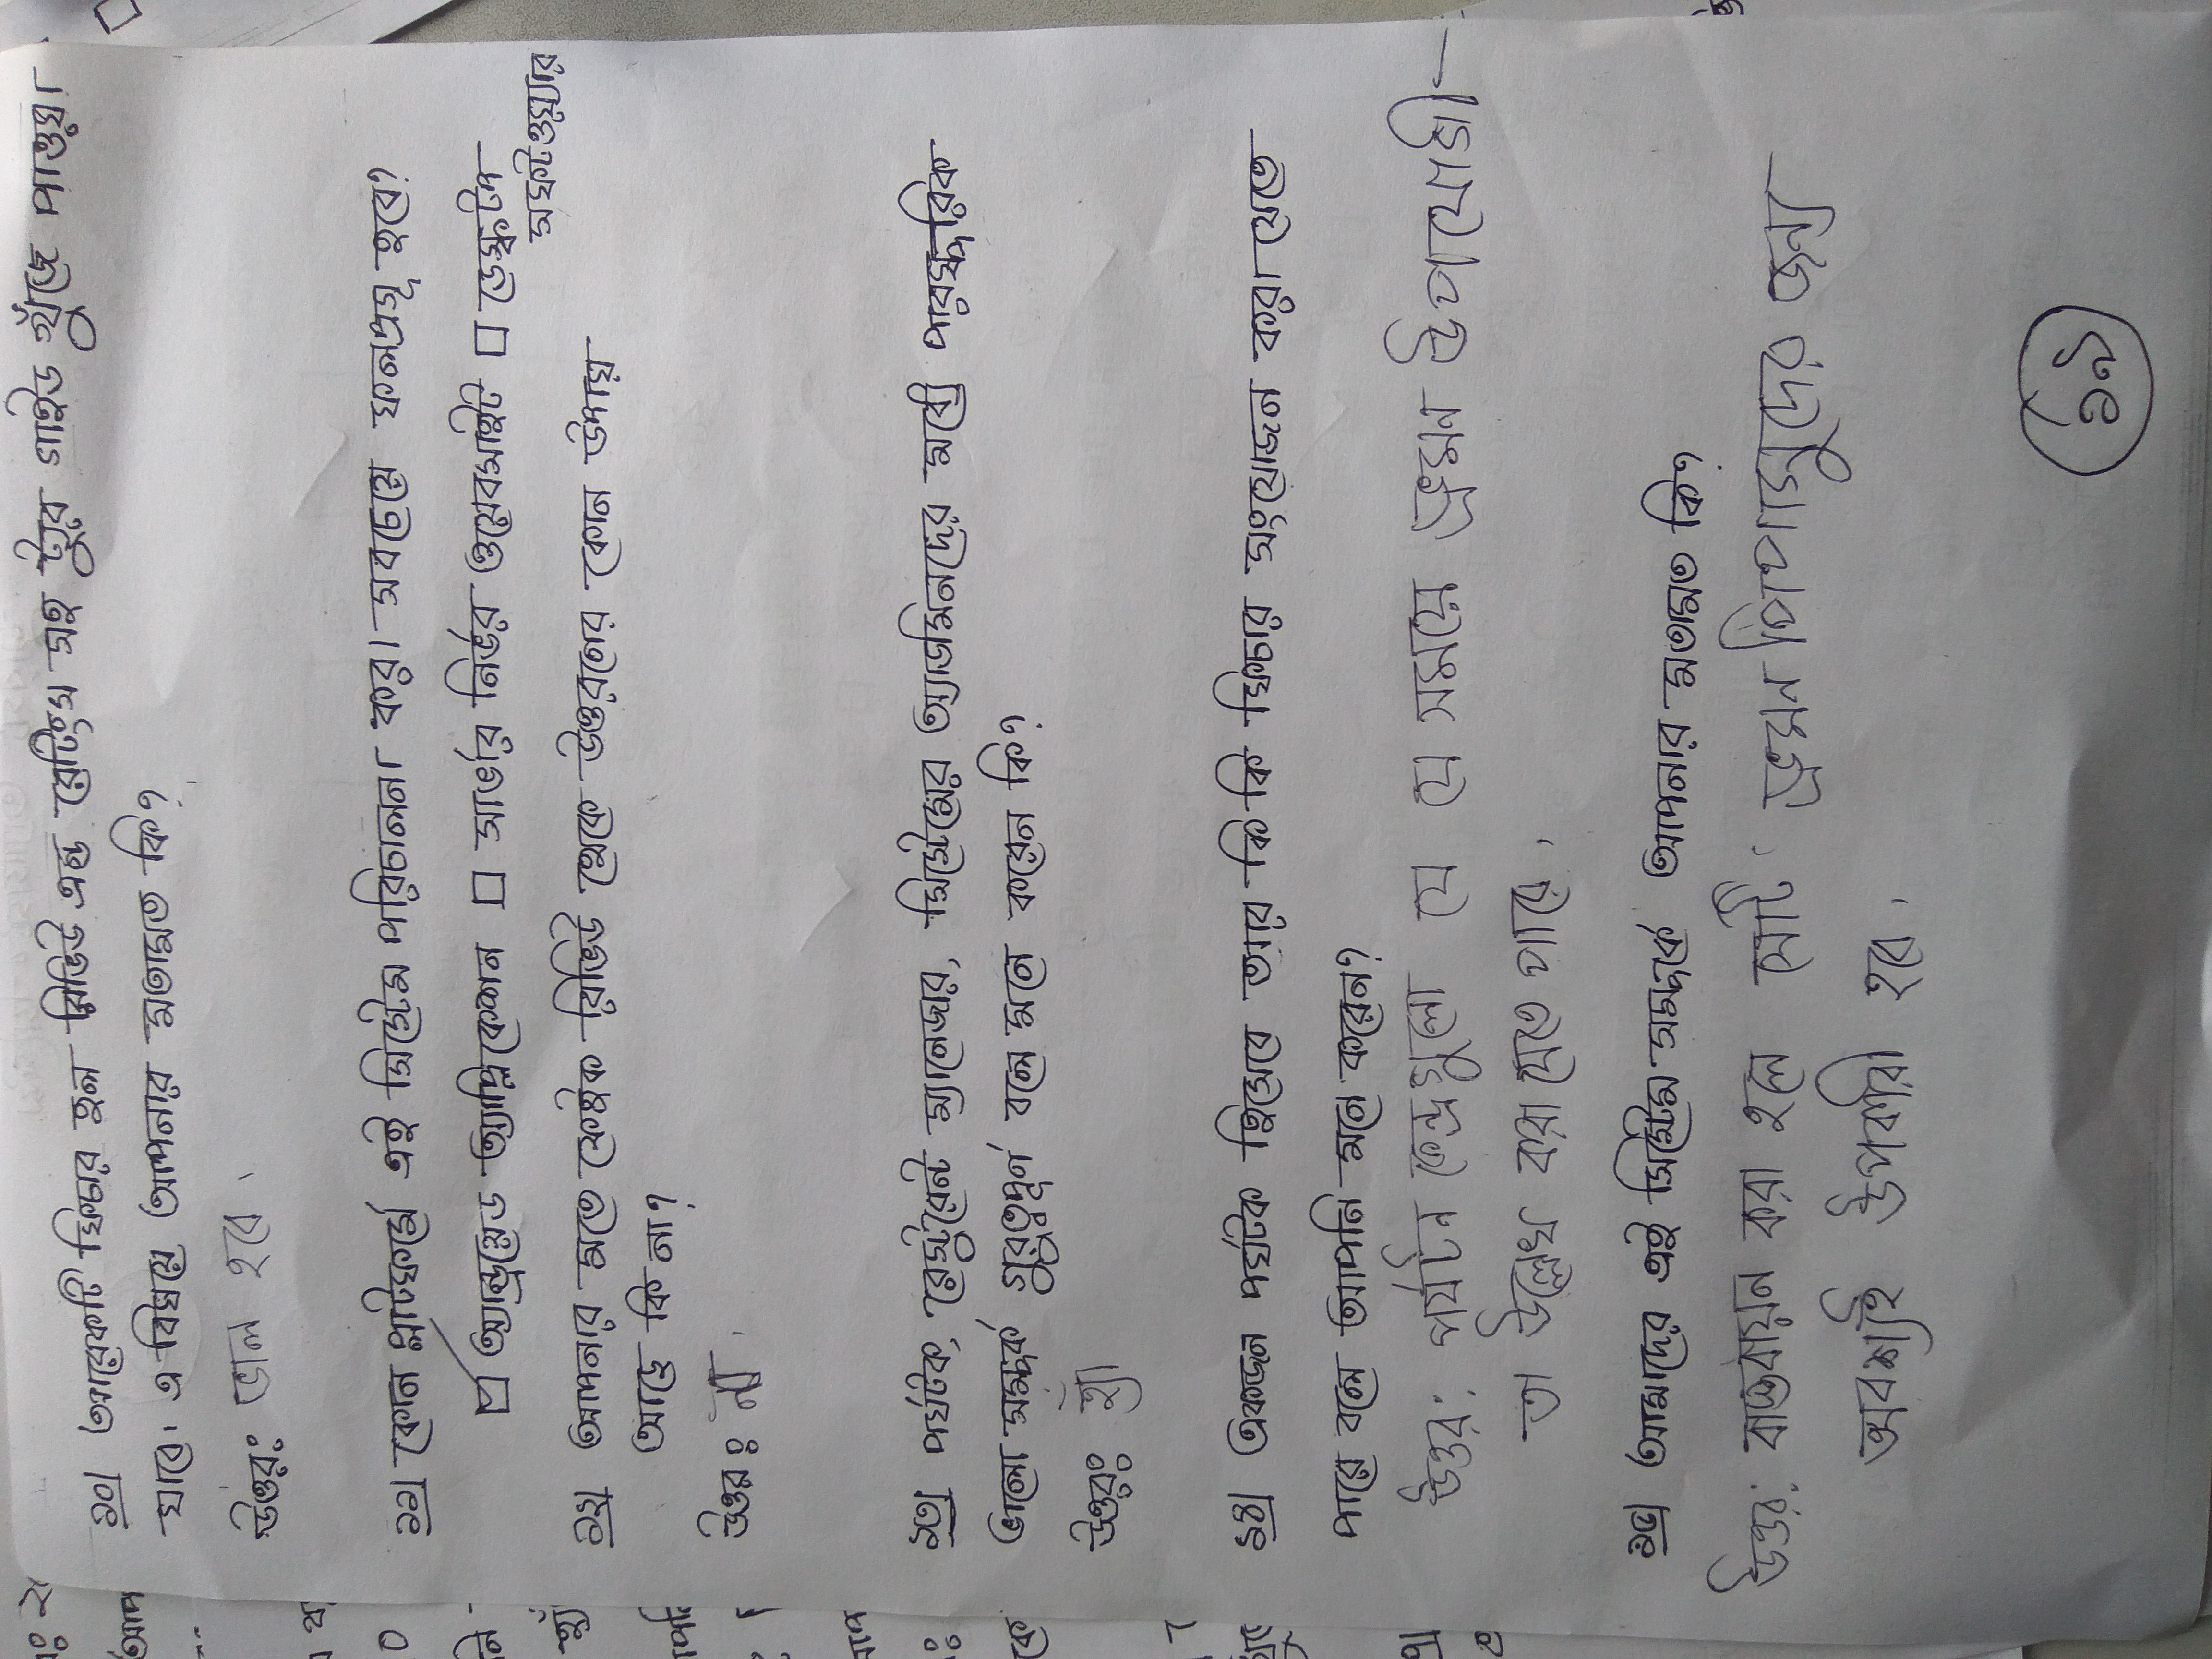 ১০| আরেকটি ফিচার হল রিভিউ এন্ড রেটিংস সহ ট্যুর গাইড খুঁজে পাওয়া
যাবে। এ বিষয়ে আপনার মতামত কি?
উত্তরঃ ভাল হবে।
১১| কোন প্লাটফর্মে এই সিস্টেম পরিচালনা করা সবচেয়ে ফলপ্রসূ হবে?
☑ অ্যান্ড্রয়েড অ্যাপ্লিকেশন □ সার্ভার নির্ভর ওয়েবসাইট □ ডেস্কটপ
সফটওয়্যার
১২| আপনার মতে ফেইক রিভিউ থেকে উত্তরনের কোন উপায়
আছে কি না?
উত্তরঃ না.
১৩| পর্যটক, রেস্টুরেন্ট ম্যানেজার, সিস্টেমের অ্যাডমিনদের মধ্যে পারস্পরিক
ভালো সম্পর্ক গুরুত্বপূর্ণ বলে মনে করেন কি?
উত্তরঃ হ্যাঁ
১৪| একজন পর্যটক হিসেবে আর কি কি ফিচার সংযোজন করা যেতে
পারে বলে আপনি মনে করেন?
উত্তর: পর্যটন কেন্দ্রগুলো যে যে সময়ে ভ্রমন উপযোগী
তা উল্লেখ করা যেতে পারে।
১৫| আমাদের এই সিস্টেম সম্পর্কে আপনার মতামত কি?
উত্তর: বাস্তবায়ন করা হলে সেটি ভ্রমন পিপাসুদের জন্য
অবশ্যই উপকারী হবে।
১৭